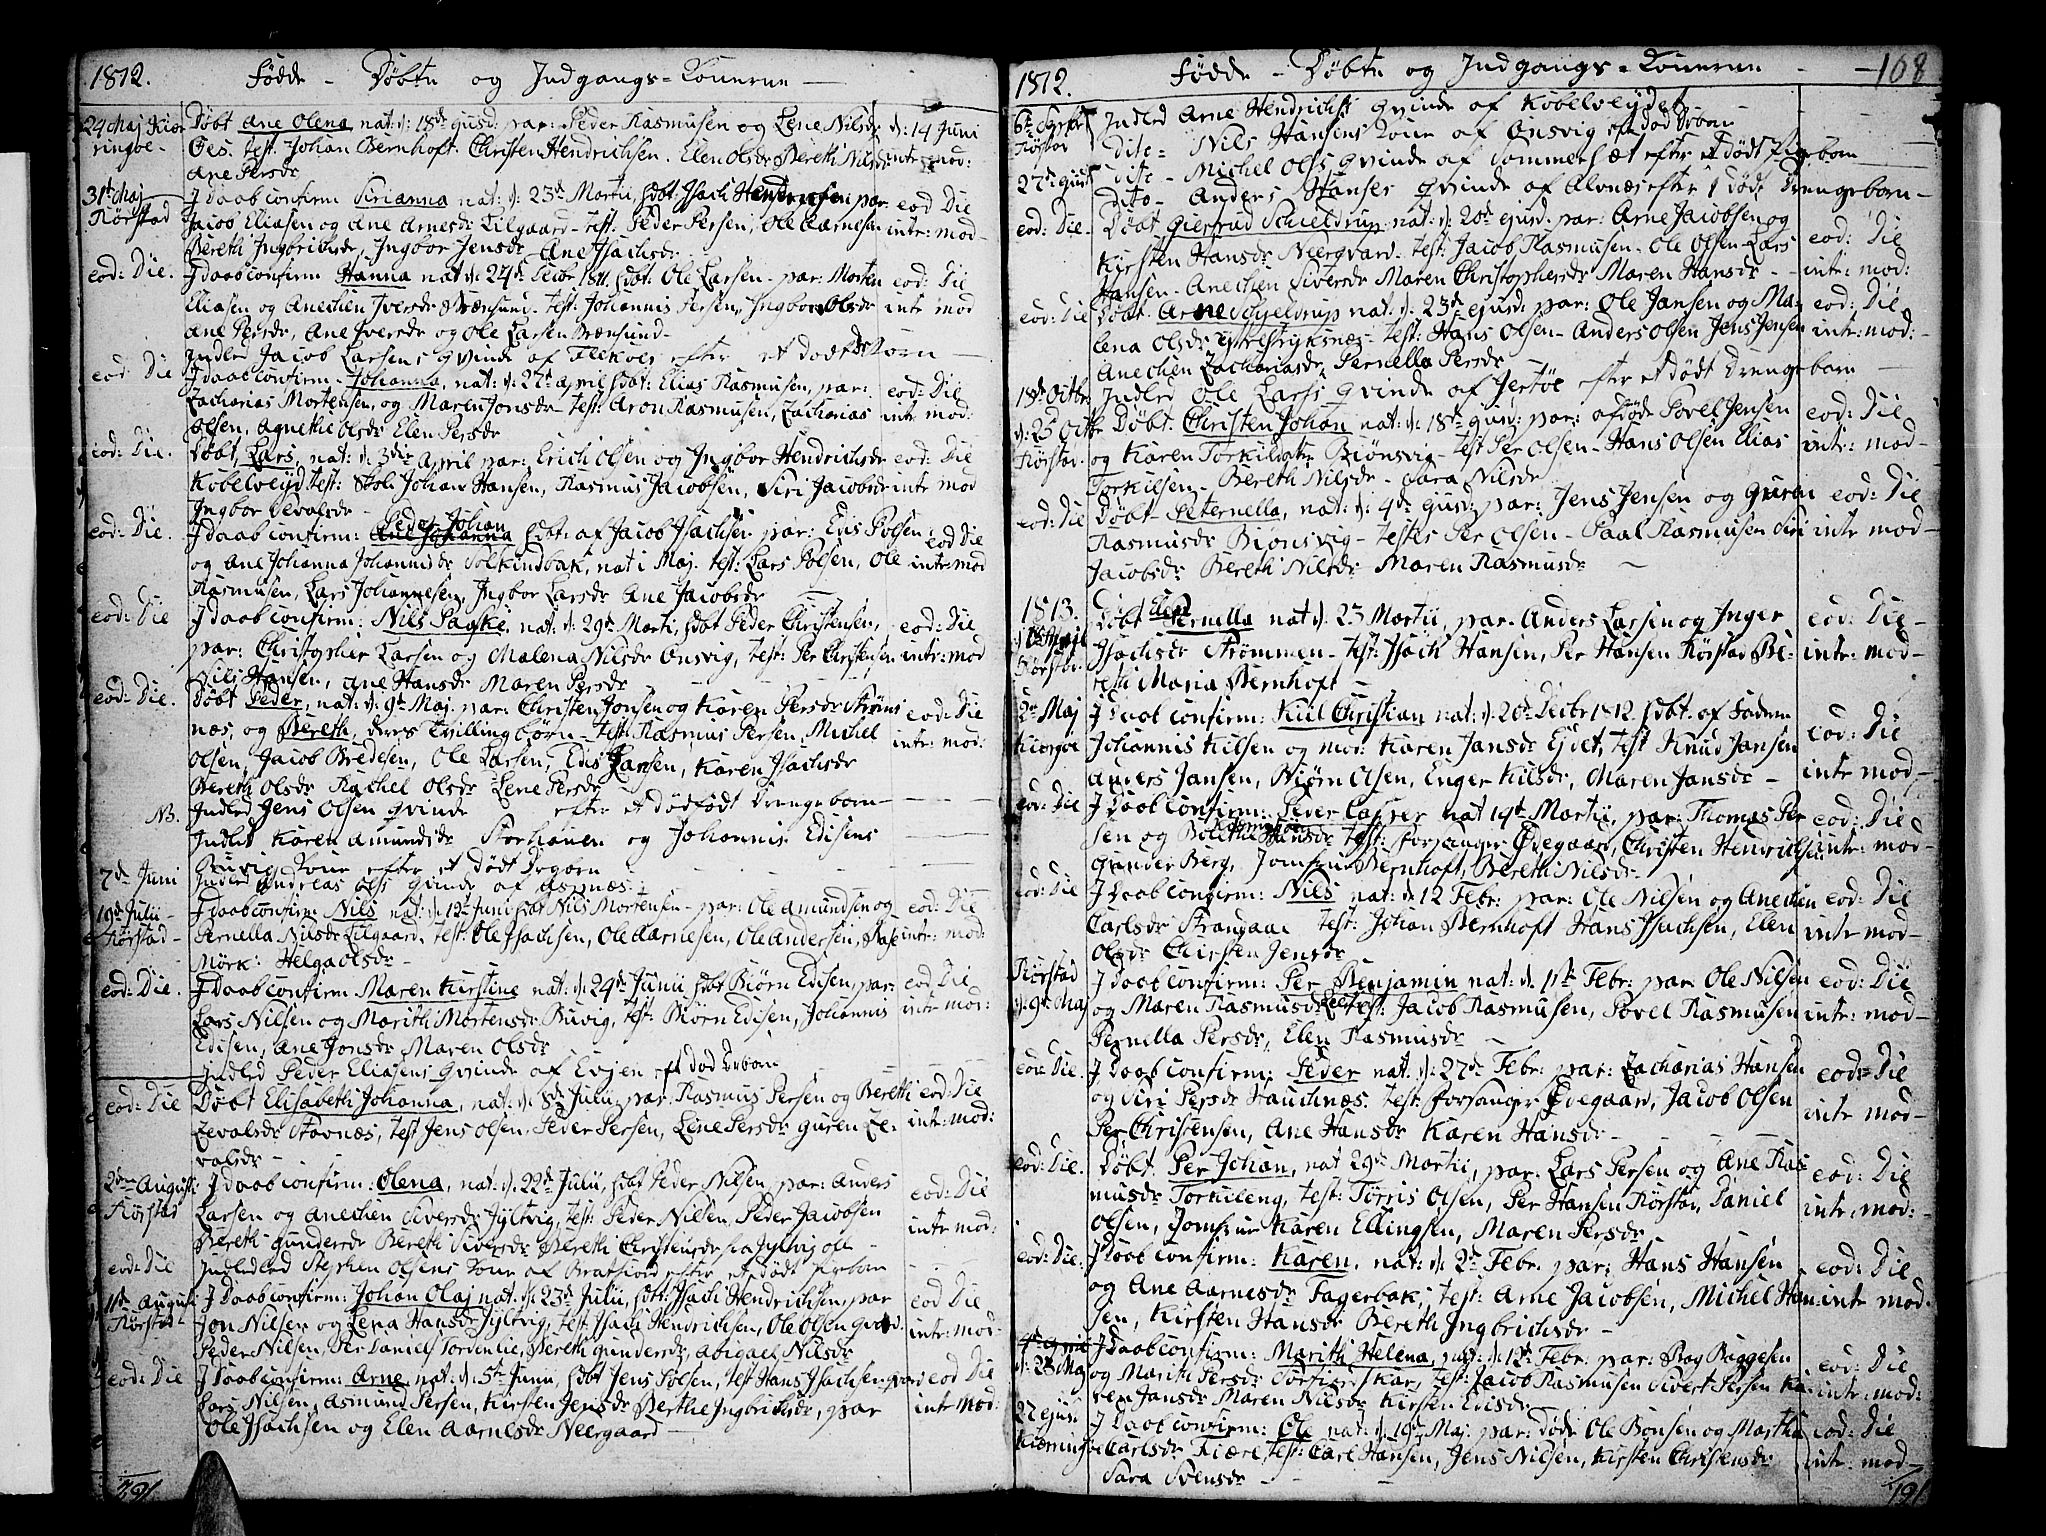 1812. Födde - Döbte og Indgangs-Konerne
24 Maj Kier Döbt Ane Olena nat: d: 18de ejusd: par: Peder Rasmusen og Lene Nilsdr d: 14 Juni
ringöe - Öes. test. Johan Bernhoft. Christen Hendrichsen. Elen Olsdr Bereth Nilsdr intr: mod:
Ane Persdr
31t Maj I daab confirm Sirianna nat: d: 23de Martii, hdbt Isach Hendrichsen par. eod Die
Rörstad Jacob Eliasen og Ane Arnesdr Lilgaard - test: Peder Persen, Ole Aarnesen intr: mod -
Bereth Ingbrichsdr, Ingbor Jensdr Ane Isachsdr -
eod: Die. I daab confirm Hanna nat d: 24de 1811. hdbt: Ole Larsen - par: Morten eod: Die
Eliasen og Anechen Iversdr Brænsund - test: Johannis Persen, Ingbor Olsdr intr mod
Ane Persdr, Ane Iversdr og Ole Larsen Brænsund -
Indled Jacob Larsens Qvinde af efter et dödt Born -
eod: Die I daab confirm - Johanna, nat: d: 27de April hdbt: Elias Rasmusen, par: eod: Die
Zacharias Mortensen, og Maren Jonsdr - test: Aron Rasmusen, Zacharias intr mod:
Olsen, Agnethe Olsdr Elen Persdr
eod: Die. Döbt, Lars, nat: d: 3die April par: Erich Olsen og Ingbor Hendrichsdr eod: Die
Kobelveyd. test: Johan Hansen, Rasmus Jacobsen, Siri Jacobsdr intr mod
Ingbor Zevalsdr -
Peder Johan
eod: Die. I daab confirm: Ane Johanna hdbt: af Jacob Isachsen par: Edis Polsen eod Die
og Ane Johanna Johannisdr nat i Maj. test: Lars Polsen, Ole intr: mod
Rasmusen, Lars Johannesen, Ingbor Larsdr Ane Jacobsdr
eod: Die I daab confirm: Nils Paaske, nat: d: 29de Marti, hdbt Peder Christensen, eod: Die
par: Christopher Larsen og Malena Nilsdr Önsvig, test: Per Christensen intr: mod
Nils Hansen, Ane Hansdr Maren Persdr -
eod: Die. Döbt Peder, nat: d: 9de Maj. par: Christen Jonsen og Karen Persdr Ströms
næs, og Bereth, deres Tvillingbörn - test: Rasmus Persen, Michel eod: Die
Olsen, Jacob Bredesen, Ole Larsen, Edis Larsen, Karen Isachsdr intr: mod:
Bereth Olsdr Rachel Olsdr Lene Persdr
NB. Indled Jens Olsen qvinde efter et dödfödt Drengeborn -
Indled Karen Amundsdr Storhauen og Johannis Edisens
Buvig, Kone efter et Dödt Pigborn
7de Juni Indled Andreas Olss qvinde af Aspnæs
19de Julii - I daab confirm: Nils nat: d: 12te Juni hdbt Nils Mortensen - par: Ole Amundsen og eod: Die
Rörstad - Pernella Nilsdr Lilgaard, test: Ole Isachsen, Ole Aarnesen, Ole Andersen, intr: mod:
Mörk: Helga Olsdr -
eod: Die. I daab confirm Maren Kirstine nat: d: 24de Junii hdbt Biörn Edisen, par: eod Die
Lars Nilsen og Marith Mortensdr Buvig, test: Biörn Edisen, Johannis intr mod:
Edisen, Ane Jonsdr Maren Olsdr
Indled Peder Eliasens Qvinde af Evjen eft död Drborn
eod: Die Döbt Elisabeth Johanna, nat: d: 8de Julii, par: Rasmus Persen og Bereth eod: Die
Zevalsdr Stovnæs, test Jens Olsen, Peder Persen, Lene Persdr guren Ze- intr: mod:
valsdr -
2den Augusti I daab confirm: Olena, nat: d: 22de Julii, hdbt Peder Nilsen, par: Anders eod: Die
Rörstad Larsen og Anechen Siversdr Jyltvig, test: Peder Nilsen, Peder Jacobsen intr mod:
Bereth Gundersdr Bereth Siversdr Bereth Christensdr fra Jyltvig
eod: Die Indledled Stephen Olsens Kone af Bratfiord efter et dödt
11de Augusti I daab confirm: Johan Olaj nat: d: 23de Julii, hdbt: Isach Hendrichsen, par eod Die
Rörstad Jon Nilsen og Lena Hansdr Jyltvig, test: Isach Hendrichsen, Ole Olsen intr: mod -
Peder Nilsen, Per Daniel Bereth Gundersdr, Abigael Nilsdr
eod: Die I daab confirm: Arne nat: d: 5te Junii, hdbt Jens Polsen, test Hans Isachsen - eod Die
Lars Nilsen, Asmund Persen, Kirsten Jensdr Berthe Ingbrichsdr, par intr mod:
Ole Isachsen og Elen Aarnesdr Neergaard -
191
1812. Födde - Döbte og Indgangs-Konerne - 168
6te Septbr Indled Arne Hendrichss qvinde af Kobelveydet -
Rörstad dito - Nils Hansens Kone af Önsvig eft död Drborn
27de ejusd dito - Michel Olss qvinde af Sommerset efter et dödt Pigeborn -
dito - Anders Hanses qvinde af Alvnæs efter 1 dödt Drengeborn -
eod: Die - Döbt Giertrud Schieldrup nat: d: 20de ejusd. par: Arne Jacobsen og eod: Die
Kirsten Hansdr Neergaard - test: Jacob Rasmusen - Ole Olsen Lars intr: mod:
Hansen - Anechen Siversdr Maren Christophersdr Maren Hansdr -
eod: Die Döbt Arne Schjeldrup nat: d: 23de ejusd: par: Ole Jansen og Ma- eod: Die
lena Olsdr test: Hans Olsen - Anders Olsen Jens Jensen intr: mod: -
Anechen Zachariasdr Pernella Persdr -
18de Octbr Indled Ole Larss qvinde af Jertöe efter et dödt Drengeborn -
d: 25 Octbr Döbt. Christen Johan nat: d: 18de ejusd: par: Povel Jensen eod: Die
Rörstad - og Karen Torkildsdr Biönsvig - test Per Olsen - Hans Olsen Elias intr: mod -
Torkilsen - Bereth Nilsdr - Sara Nilsdr
eod: Die Döbt Peternella, nat: d: 4de ejusd: par: Jens Jensen og Guren eod: Die
Rasmusdr Biönsvig - testes Per Olsen - Paal Rasmusen Siri intr mod -
Jacobsdr Bereth Nilsdr Maren Rasmusdr -
1813. Döbt Elen Pernella nat d: 23 Martii, par: Anders Larsen og Inger eod: Die -
Rörstad - Isachsdr Strömmen - test: Isach Hansen, Per Hansen Rörstad Be- intr: mod -
reth Maria Bernhoft -
2den Maj I daab confirm: Kiil Christian nat: d: 20de Decbr 1812. hdbt. af Faderen eod: Die
Kieringöe Johannis Kilsen og mod: Karen Jansdr Ejdet, test Knud Jansen intr mod -
Anders Jansen, Biörn Olsen, Enger Kilsdr, Maren Jansdr -
eod: Die I Daab confirm: Peder Casper nat 19de Martii, par: Thomas Per eod: Die
sen og Boleth Hansdr test: Forsanger Ödegaard, Christen Henrichsen intr: mod -
Gunder Berg, Jomfrue Bernhoft, Bereth Nilsdr -
eod: Die I Daab confirm: Nils nat: d: 12 Febr: par: Ole Nilsen og Anechen eod: Die
Carlsdr Strandaae test: Johan Bernhoft Hans Isachsen, Elen intr mod -
Olsdr Chirsten Jensdr
Rörstad I daab confirm: Per Benjamin nat: d. 11te Febr: par: Ole Nilsen eod: Die
d: 9de Maj og Maren Rasmusdr test: Jacob Rasmusen, Povel Rasmusen intr: mod -
Pernella Persdr, Elen Rasmusdr -
eod: Die. I Daab confirm: Peder nat: d: 27de Febr: par: Zacharias Hansen eod: Die
og Siri Persdr Hauchnæs. test: Forsanger Ödegaard, Jacob Olsen intr mod -
Per Christensen, Ane Hansdr Karen Hansdr -
eod: Die. Döbt. Per Johan, nat 29de Martii, par: Lars Persen og Ane Ras eod: Die
musdr Torkileng, test: Törris Olsen, Per Hansen Rörstad, Daniel intr: mod: -
Olsen, Jomfrue Karen Ellingsen, Maren Persdr -
eod: Die. I Daab confirm: Karen, nat: d: 2de Febr. par: Hans Hansen eod: Die
og Ane Aarnesdr Fagerbak, test: Arne Jacobsen, Michel Han- intr mod -
sen, Kirsten Hansdr Bereth Ingbrichsdr -
I daab confirm: Marith Helena, nat: d: 12te Febr: par: Baggesen eod: Die
d: 23 Maj og Marith Persdr test: Jacob Rasmusen Sivert Persen Ka- intr: mod:
ren Jansdr Maren Nilsdr Kirsten Edisdr -
27 ejusd I Daab confirm: Ole nat: d: 19de Maj. par: döde Ole Bönsen og Martha eod: Die
Kieringöe Carlsdr Kiære, test: Carl Hansen, Jens Nilsen, Kirsten Christensdr intr: mod -
Sara Svensdr - -
191